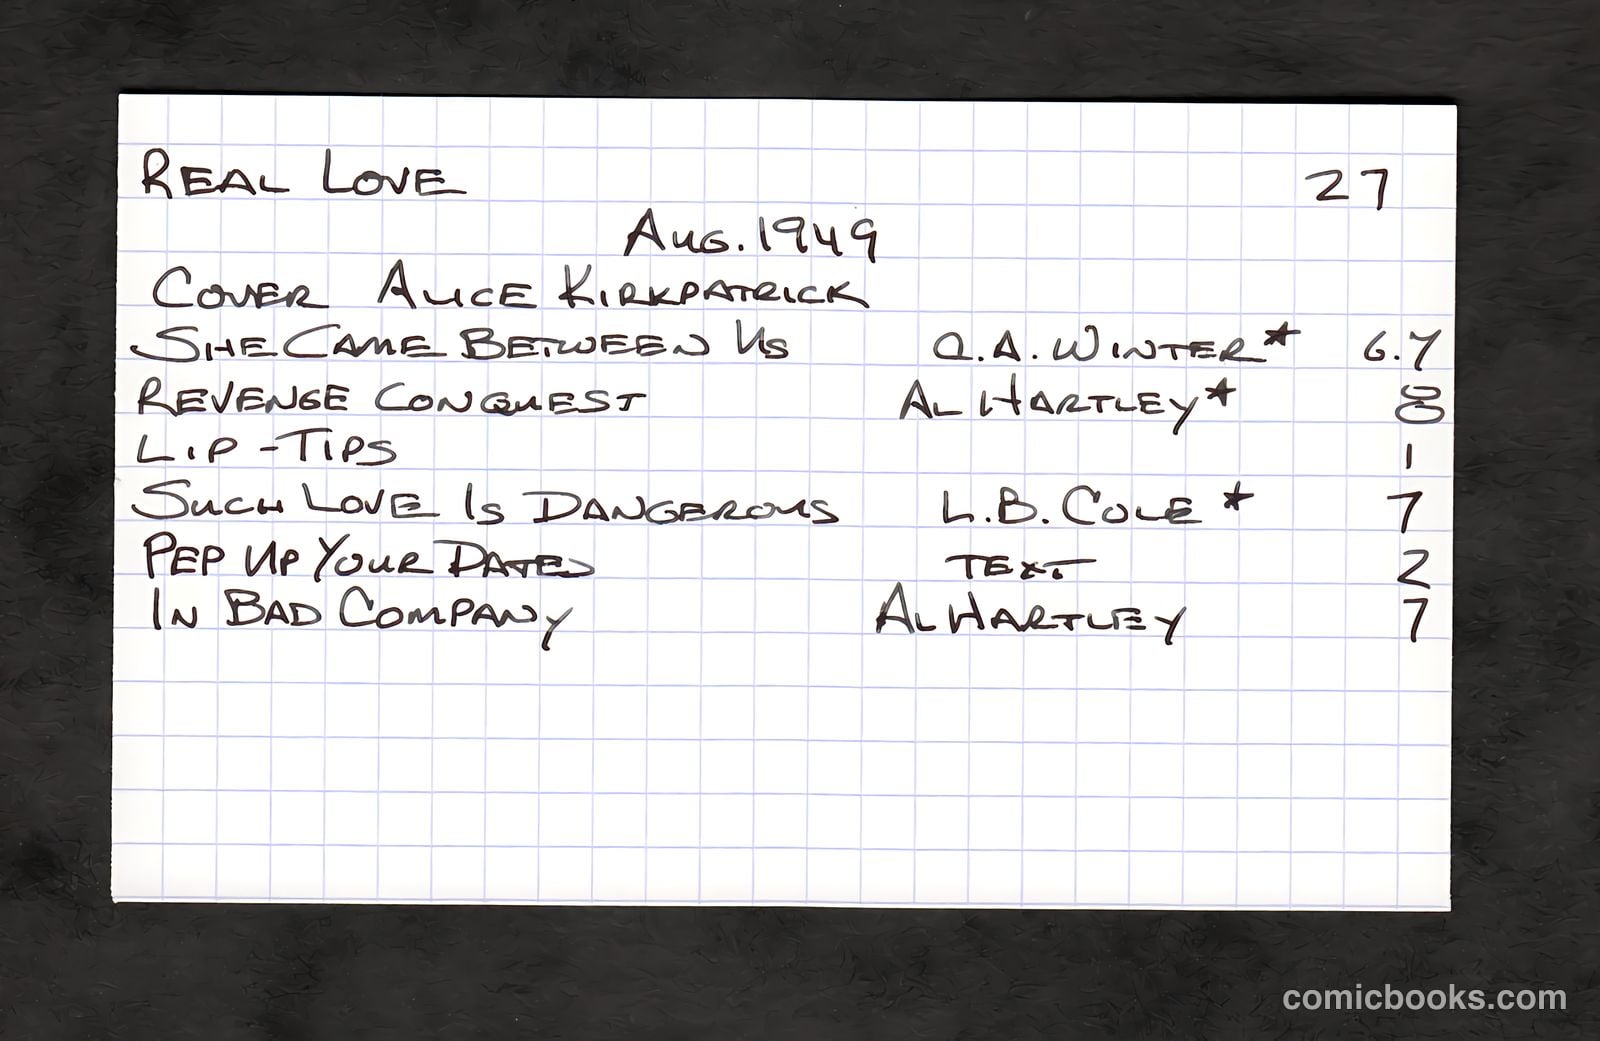 REAL LOVE 27
AUG. 1949
COVER ALICE KIRKPATRICK
SHE CAME BETWEEN US C.A. WINTER* 6.7
REVENGE CONQUEST AL HARTLEY* 8
LIP-TIPS 1
SUCH LOVE IS DANGEROUS L.B. COLE* 7
PEP UP YOUR DATES TEXT 2
IN BAD COMPANY AL HARTLEY 7
comicbooks.com